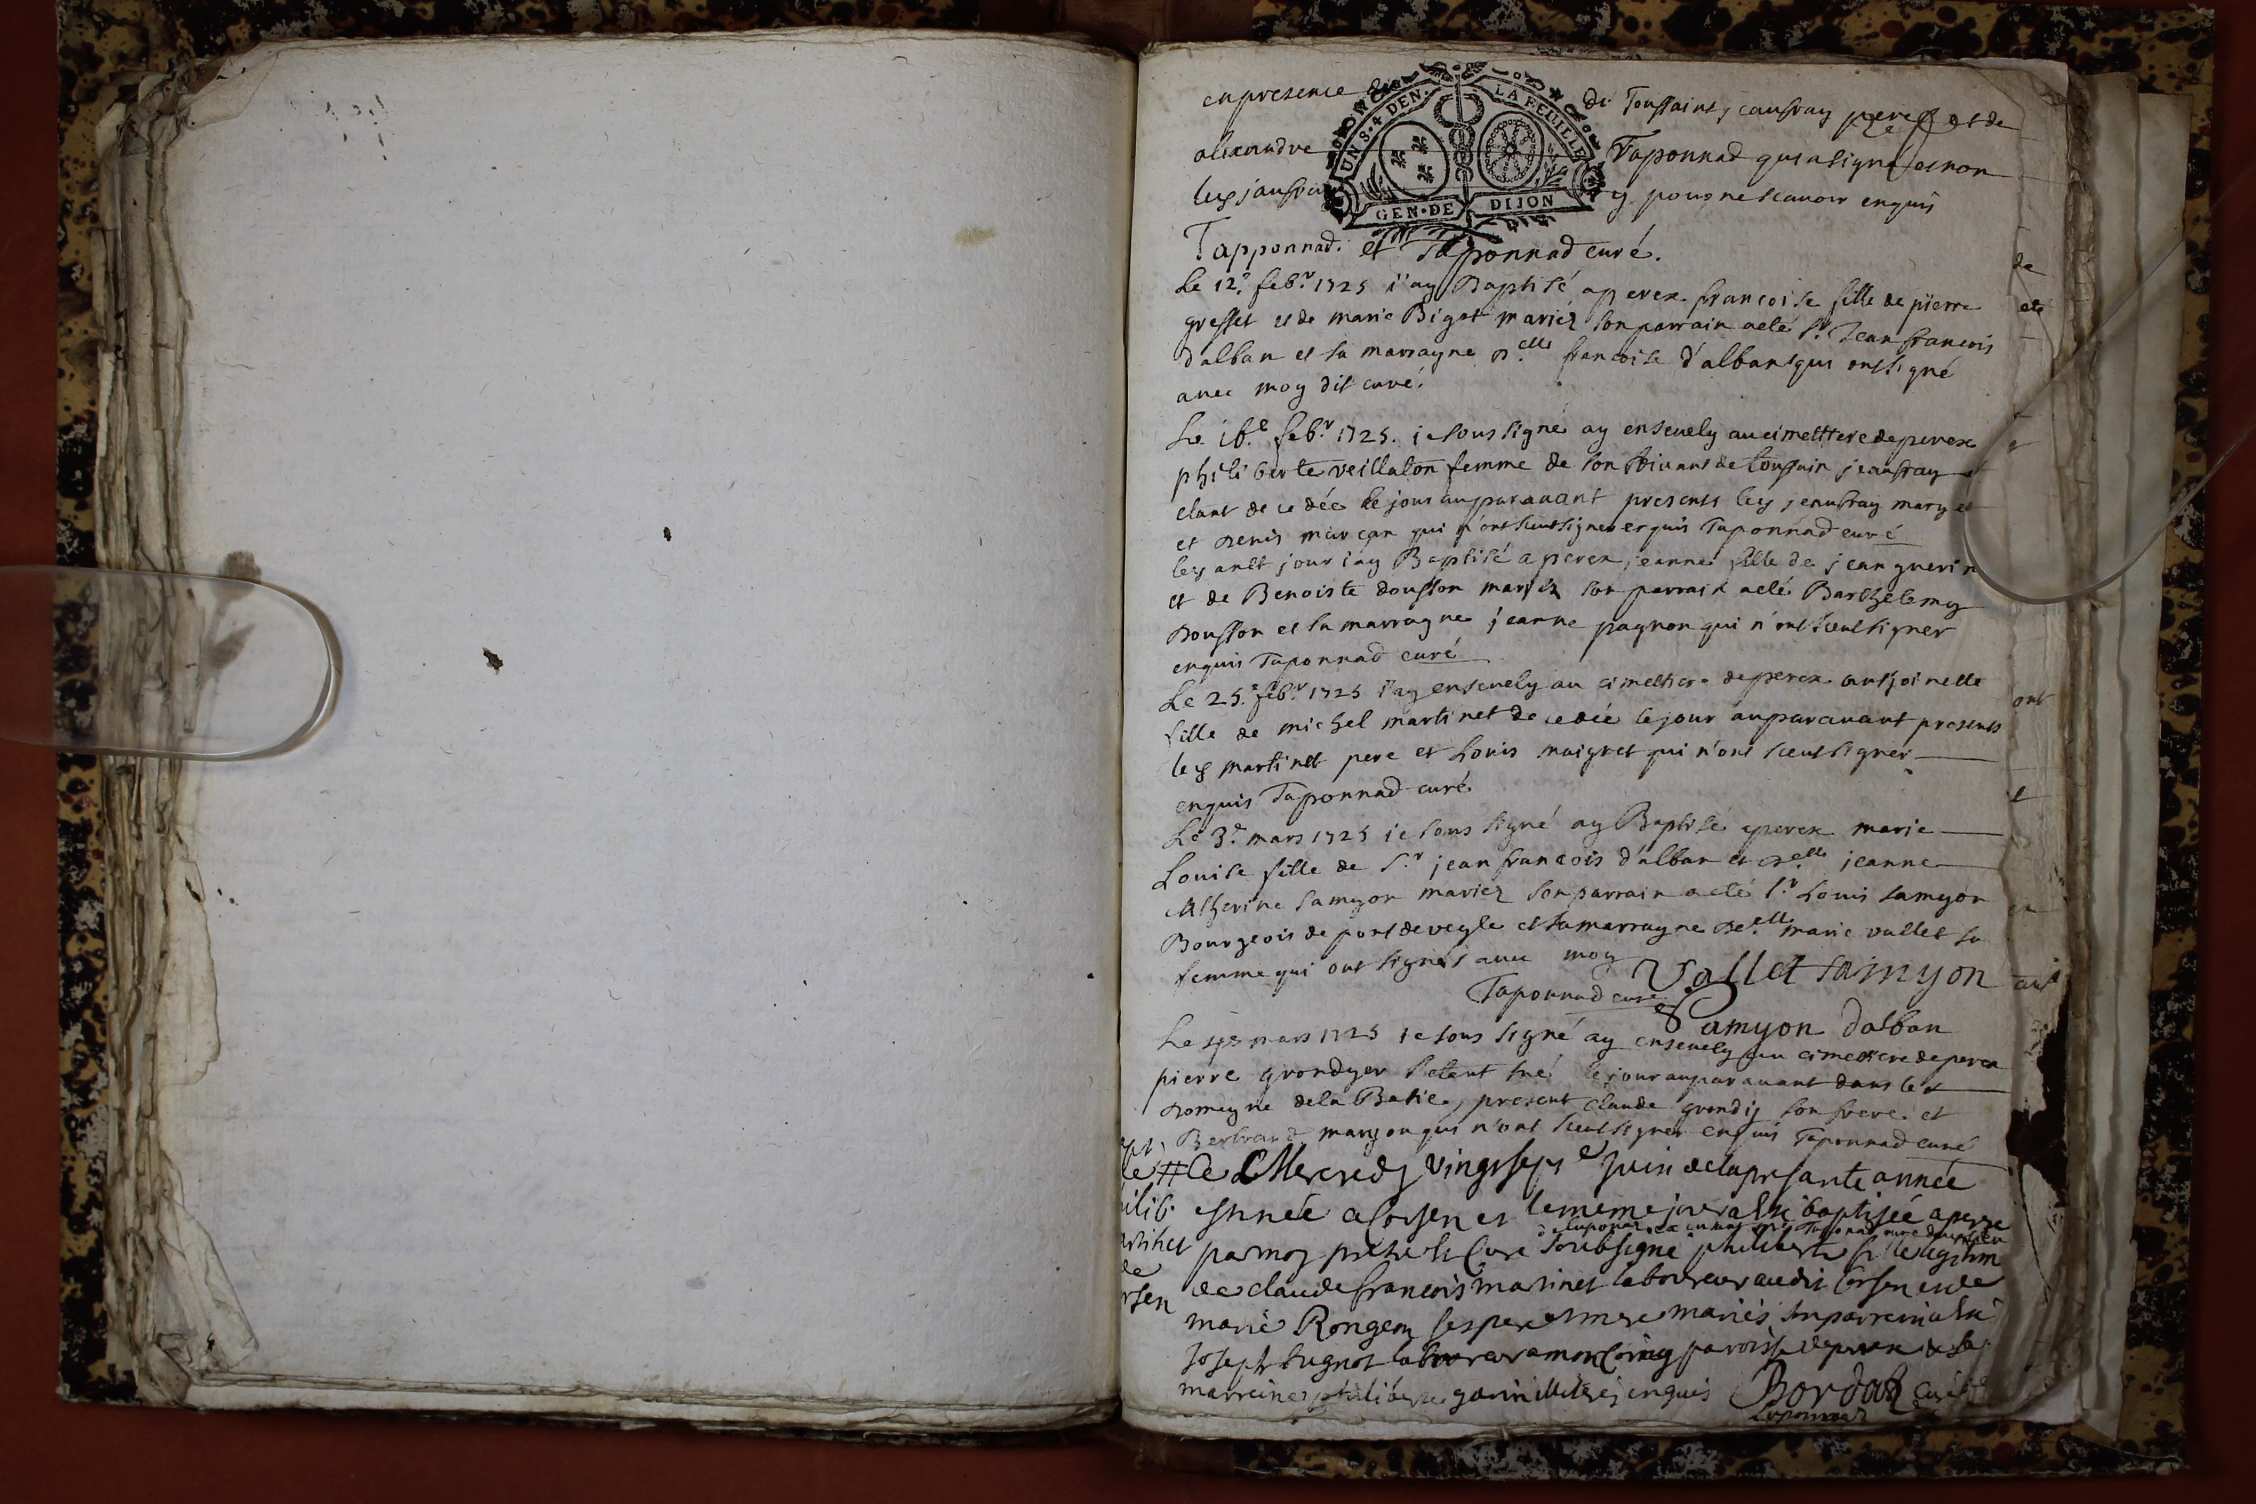 en presence de Toussaint jaufray pere et de
UN S. 4 DEN. LA FEUILLE
GEN. DE DIJON
alexandre Taponnad qui a signé et non
leq jaufray pour ne scavoir enquis
Tapponnad. et Taponnad curé.
Le 12.e feb.r 1725 j'ay Baptisé a perex francoise fille de pierre
gresset et de marie Bigot mariez son parrain a eté s.r Jean francois
d'alban et sa marrayne d.elle francoise d'alban qui ont signé
avec moy dit curé.
Le 16.e feb.r 1725. je sous signé ay ensevely au cimettere de perex
philiberte veillaton femme de son vivant de toussain jeaufray
elant de cedée le jour auparavant presents leq jeaufray mary et
et denis marcan qui n'ont sceut signer enquis Taponnad curé
leq ault jour j'ay Baptisé a perex jeanne fille de jean guerin
et de Benoiste dousson mariez son parrain a eté Barthelemy
Dousson et sa marrayne jeanne pagnon qui n'ont sceut signer
enquis Taponnad curé
Le 25.e feb.r 1725 j'ay ensevely au cimettere de perex anthoinette
fille de michel martinet de cedée le jour auparavant presents
leq martinet pere et Louis maigret qui n'ont sceut signer
enquis Taponnad curé
Le 3.e mars 1725 je sous signé ay Baptisé a perex marie
Louise fille de s.r jean francois d'alban et d.elle jeanne
Catherine samyon mariez son parrain a eté s.r Louis samyon
Bourgeois de pont de veyle et sa marrayne de.elle marie vallet sa
femme qui ont signés avec moy
Vallet samyon
Taponnad curé
Samyon Dalban
Le mars 1725 je sous signé ay ensevely au cimettere de perex
pierre grondyer s'etant tué le jour auparavant dans le
domayne de la Batie, present Claude grondy son frere. et
Bertrand manyon qui n'ont sceut signer enquis Taponnad curé
# Ce Mercredy vingt sept e juin de la presante année
est née a Corsen et le meme jour a été baptisée a perex
par moy prêtre et Curé soubsigné philiberte fille legitime
de claude francois matinet laboureur audit Corsen et de
marie Rongeon ses pere et mere mariés son parrein a été
Joseph bugnot laboureur a mon paroisse de perex et sa
marreine philiberte enquis Bordat curé